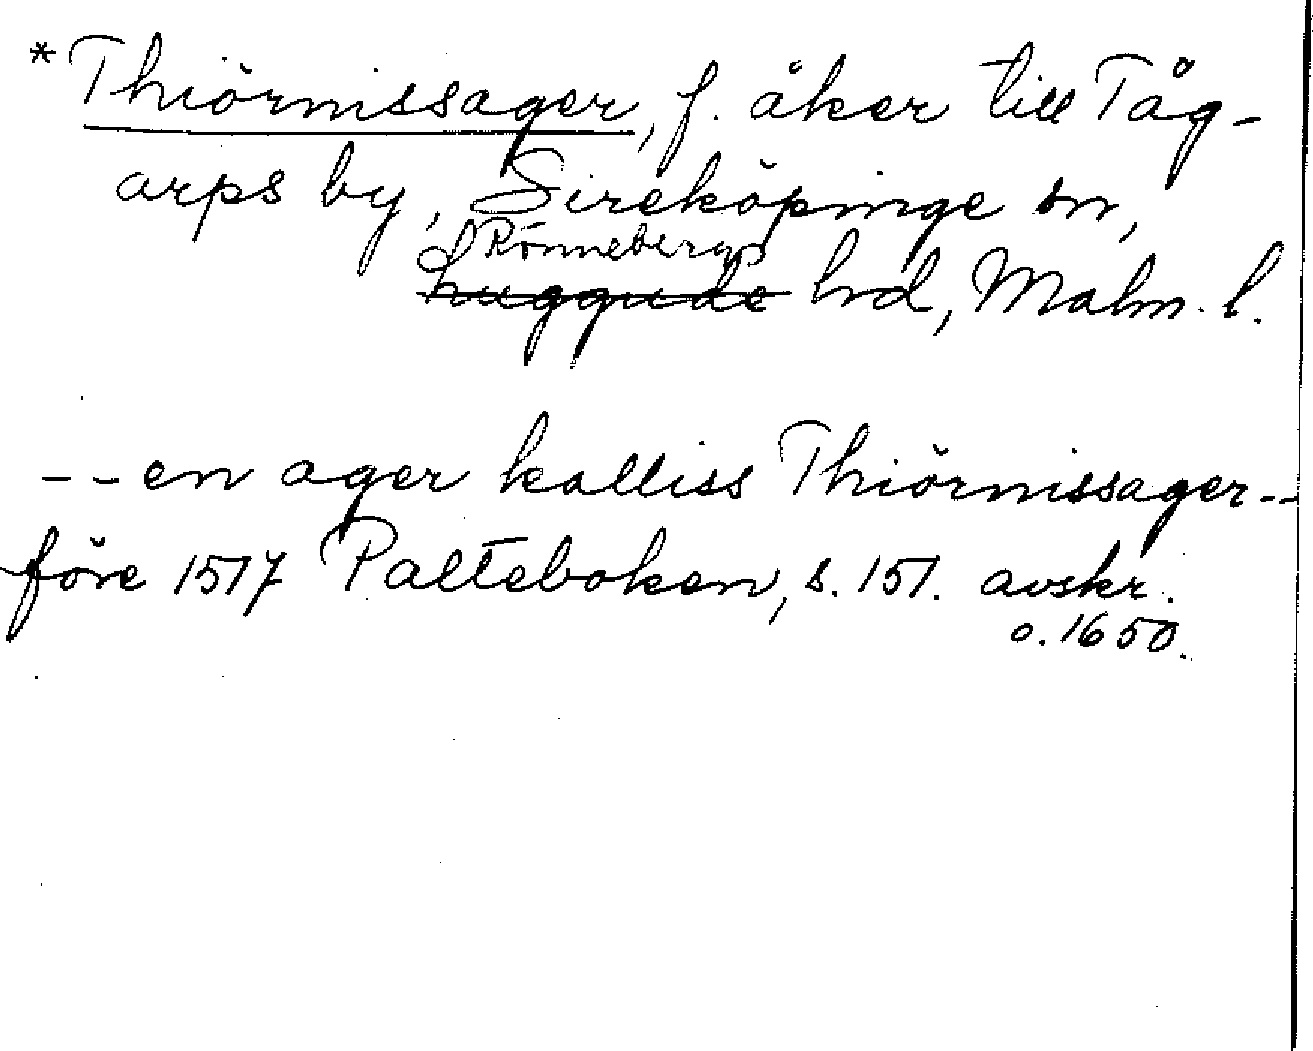 *Thiörnissager, f. åker till Tåg-
arps by, Sireköpinge sn,
Rönnebergs
Luggude hd, Malm. l.
--en ager kalliss Thiörnissager--
före 1517 Palteboken, s. 151. avskr.
o. 1650.